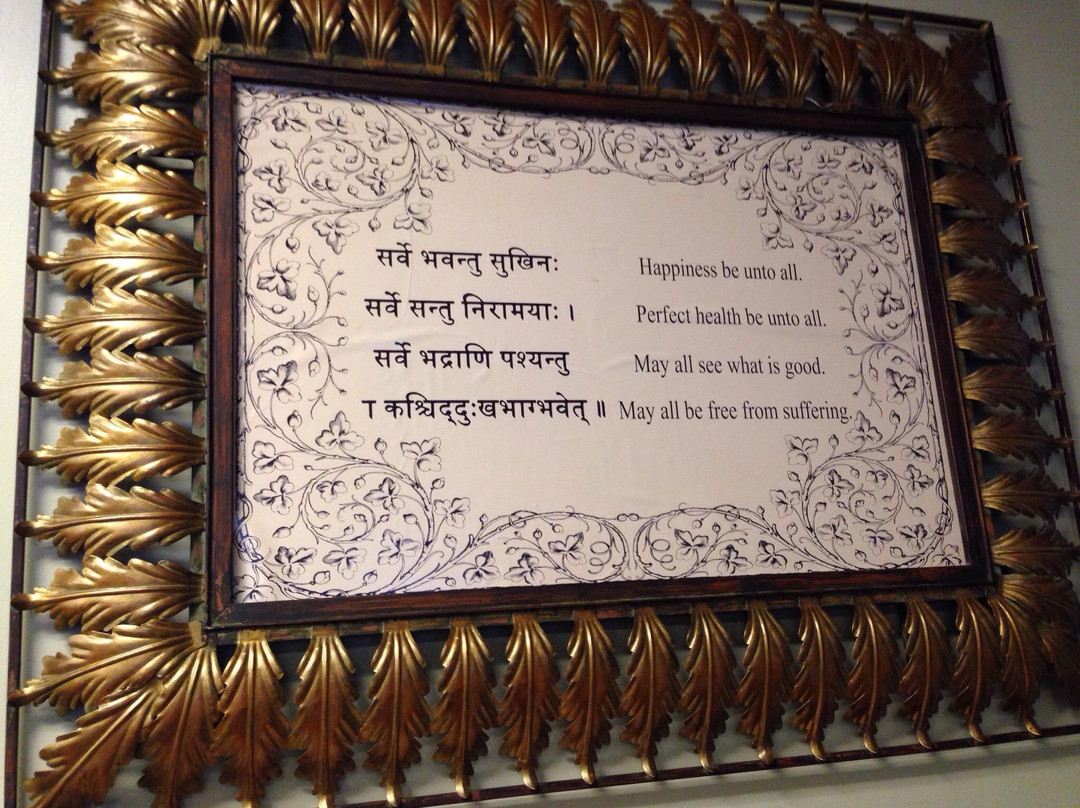 सर्वे भवन्तु सुखिनः Happiness be unto all.
सर्वे सन्तु निरामयाः । Perfect health be unto all.
सर्वे भद्राणि पश्यन्तु May all see what is good.
ा कश्चिद्दुःखभाग्भवेत् ॥ May all be free from suffering.